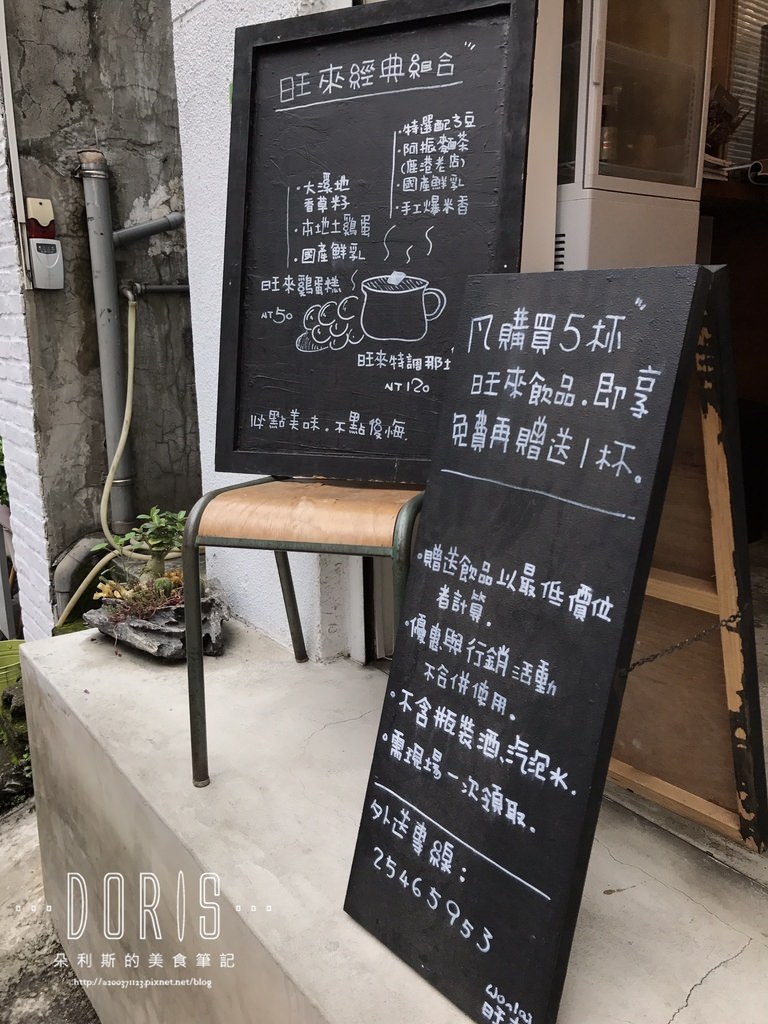 旺來經典組合
・特選配方豆
・阿振麵茶
(鹿港老店)
・國產鮮乳
・手工爆米香
・大溪地
香草籽
・本地土雞蛋
・國產鮮乳
旺來雞蛋糕
NT 50
旺來特調那
NT 120
必點美味．不點後悔．
凡購買5杯
旺來飲品．即享
免費再贈送1杯。
・贈送飲品以最低價位
者計算．
・優惠與行銷活動
不合併使用。
・不含瓶裝酒、汽泡水．
・需現場一次領取．
外送專線：
25465953
旺
DORIS
朵利斯的美食筆記
http://a200371123.pixnet.net/blog